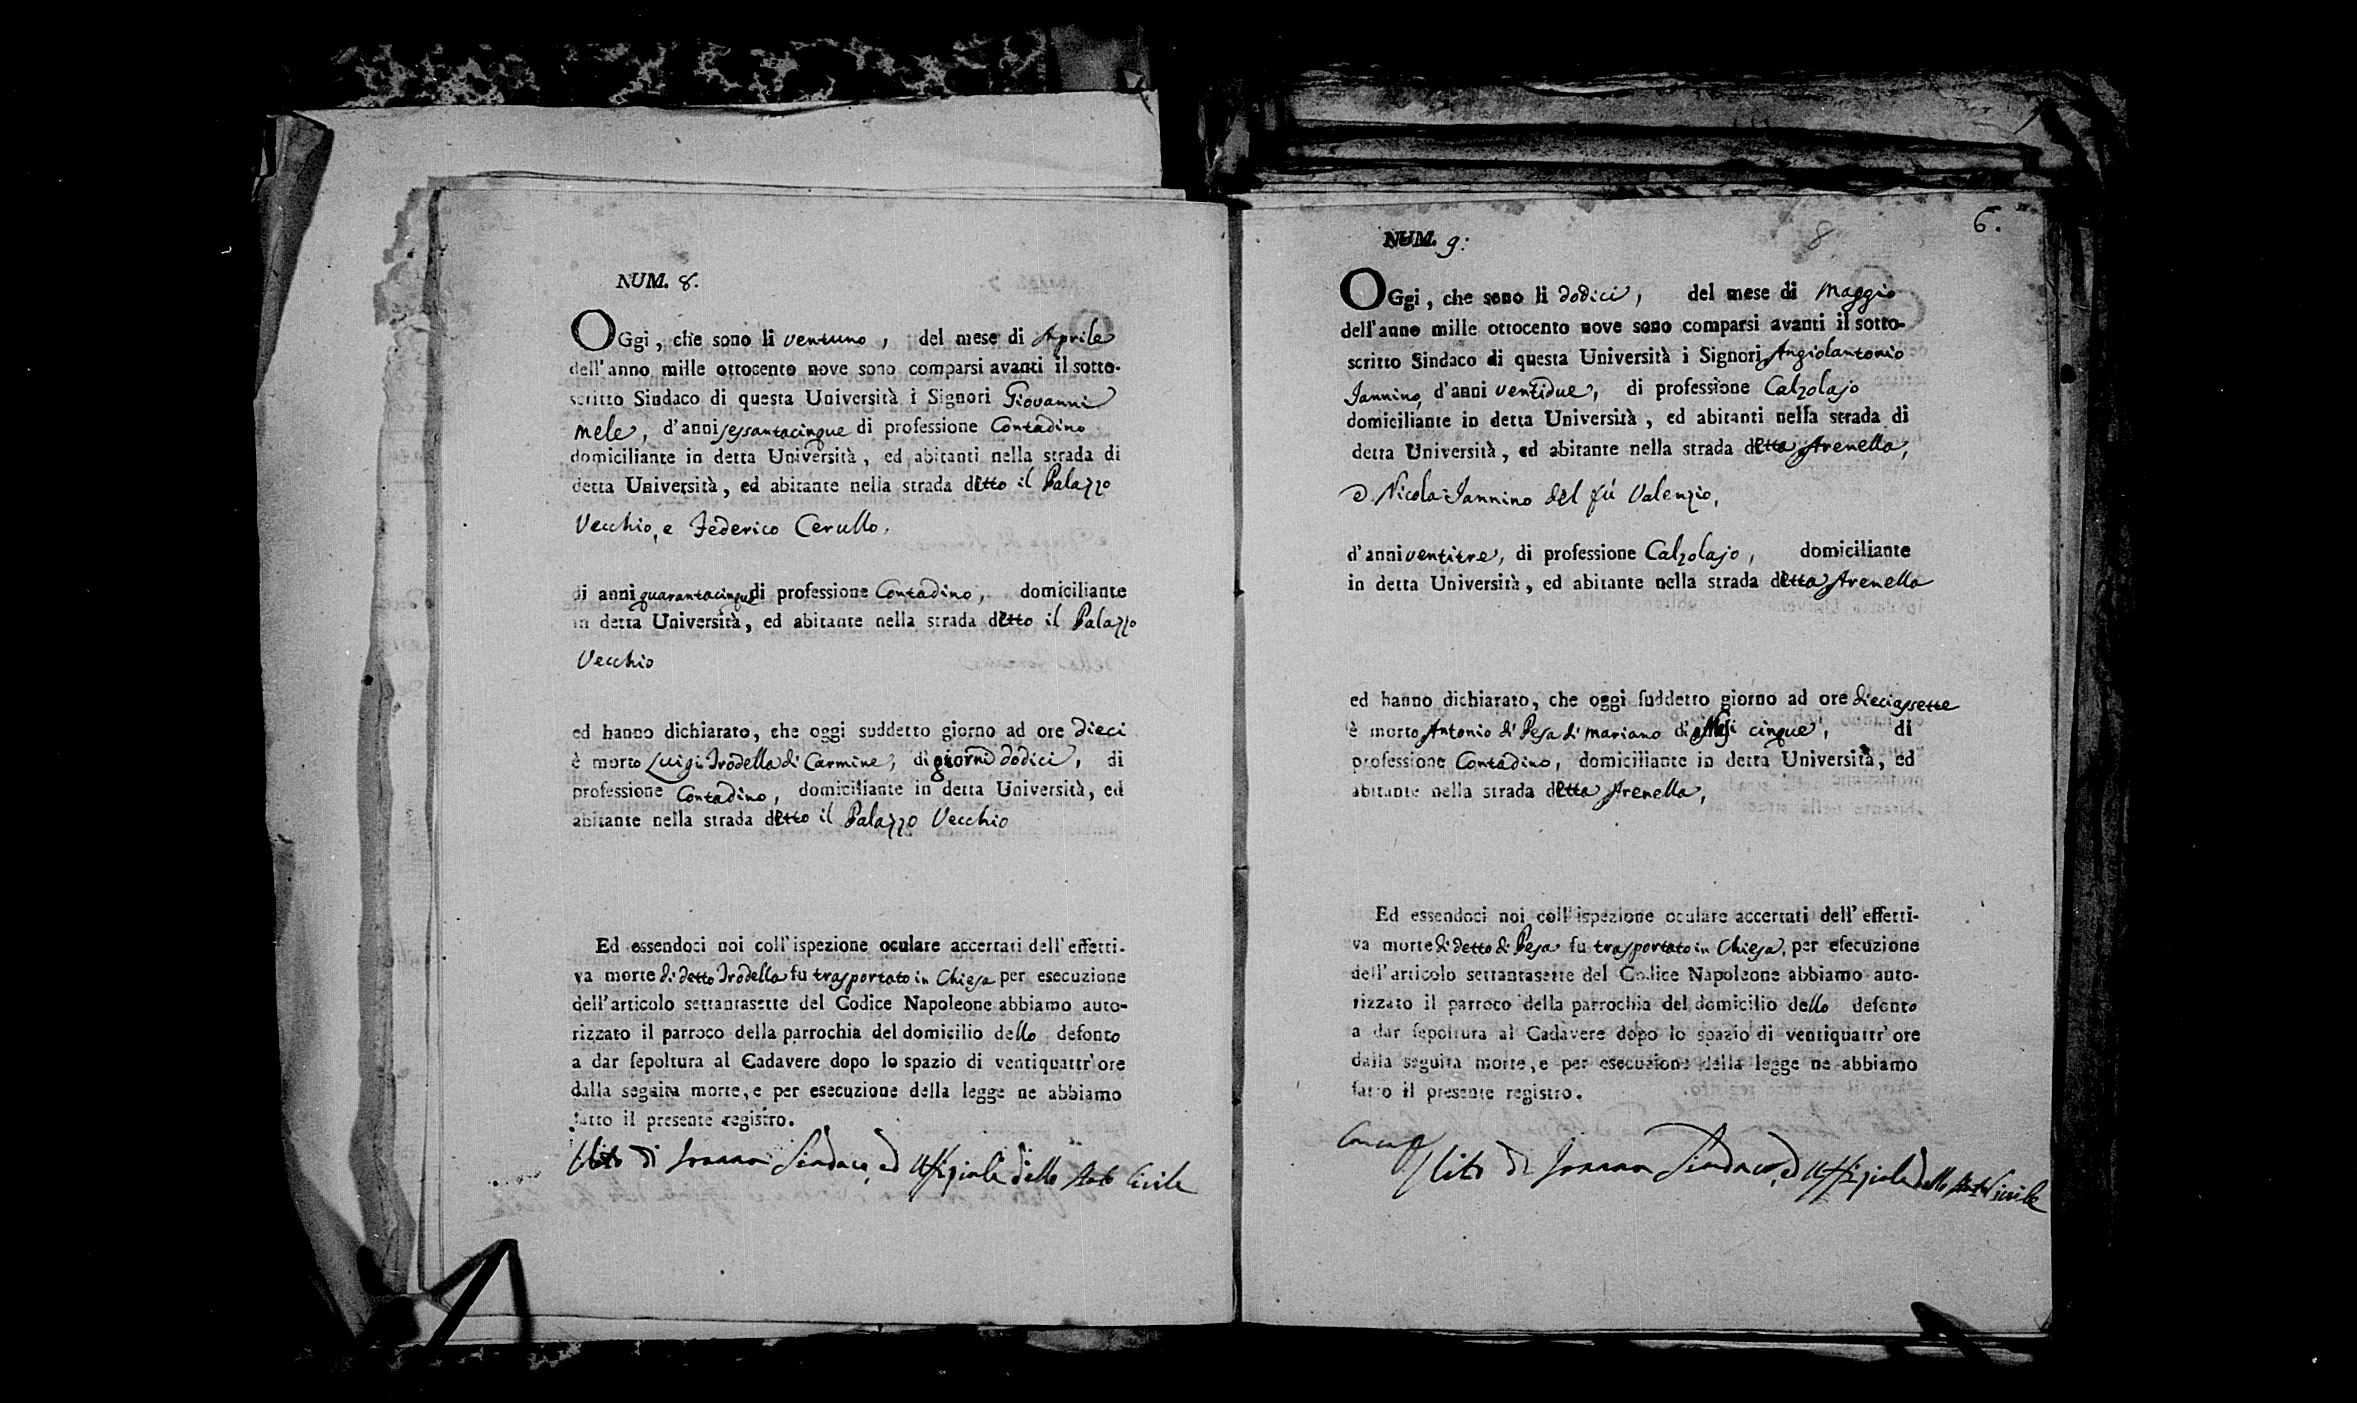 NUM. 8.
OGgi, che sono li ventuno, del mese di Aprile
dell'anno mille ottocento nove sono comparsi avanti il sotto-
scritto Sindaco di questa Università i Signori Giovanni
Mele, d'anni sessantacinque di professione Contadino
domiciliante in detta Università, ed abitanti nella strada di
detta Università, ed abitante nella strada detto il Palazzo
Vecchio, e Federico Cerullo,
di anni quarantacinque di professione Contadino, domiciliante
in detta Università, ed abitante nella strada detto il Palazzo
Vecchio
ed hanno dichiarato, che oggi suddetto giorno ad ore dieci
è morto Luigi Irodella di Carmine, di giorni dodici, di
professione Contadino, domiciliante in detta Università, ed
abitante nella strada detto il Palazzo Vecchio
Ed essendoci noi coll'ispezione oculare accertati dell'effetti-
va morte di detto Irodella fu trasportato in Chiesa per esecuzione
dell'articolo settantasette del Codice Napoleone abbiamo auto-
rizzato il parroco della parrochia del domicilio dello defonto
a dar sepoltura al Cadavere dopo lo spazio di ventiquattr'ore
dalla seguita morte, e per esecuzione della legge ne abbiamo
fatto il presente registro.
Vito di Sindaco, ed Uffiziale dello Stato Civile
6.
8
NUM. 9:
OGgi, che sono li dodici, del mese di Maggio
dell'anno mille ottocento nove sono comparsi avanti il sotto-
scritto Sindaco di questa Università i Signori Angiolantonio
Iannino, d'anni ventidue, di professione Calzolajo
domiciliante in detta Università, ed abitanti nella strada di
detta Università, ed abitante nella strada detta Arenella,
e Nicola Iannino del fù Valenzio,
d'anni ventitre, di professione Calzolajo, domiciliante
in detta Università, ed abitante nella strada detta Arenella
ed hanno dichiarato, che oggi suddetto giorno ad ore dieciassette
è morto Antonio di Pesa di Mariano di Mesi cinque, di
professione Contadino, domiciliante in detta Università, ed
abitante nella strada detta Arenella,
Ed essendoci noi coll'ispezione oculare accertati dell'effetti-
va morte di detto di Pesa fu trasportato in Chiesa, per esecuzione
dell'articolo settantasette del Codice Napoleone abbiamo auto-
rizzato il parroco della parrochia del domicilio dello defonto
a dar sepoltura al Cadavere dopo lo spazio di ventiquattr'ore
dalla seguita morte, e per esecuzione della legge ne abbiamo
fatto il presente registro.
Vito di Sindaco, ed Uffiziale dello Stato Civile